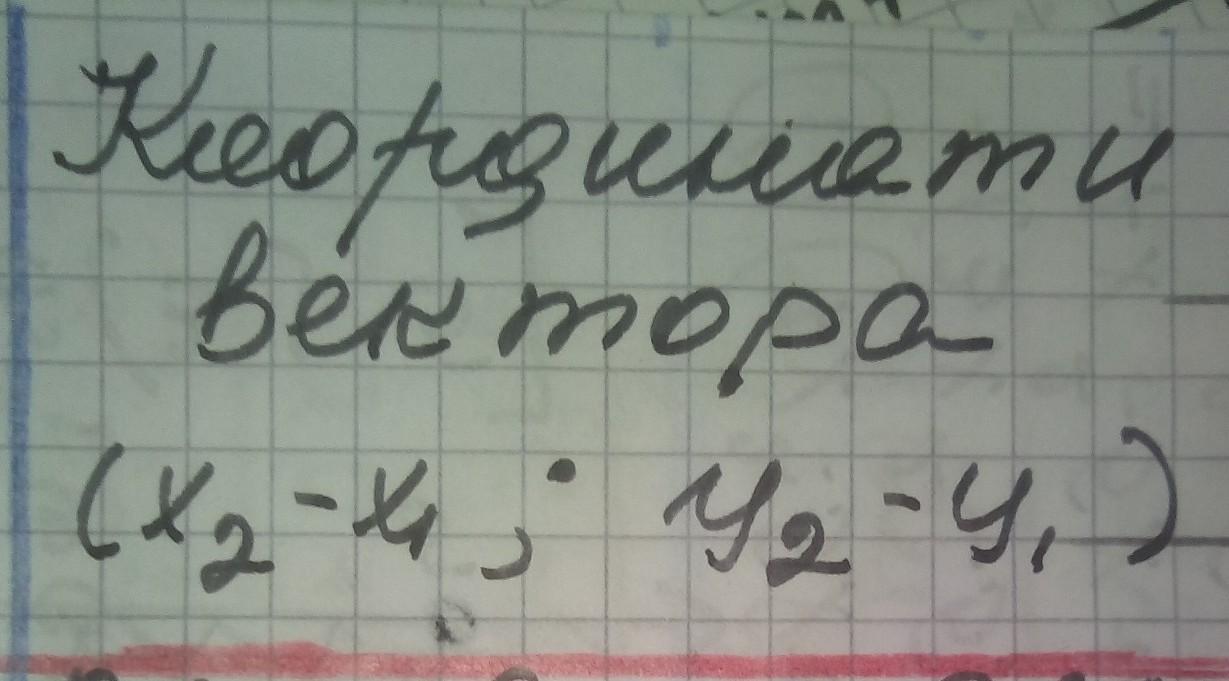 Координати
вектора
(x₂ - x₁ ; y₂ - y₁)